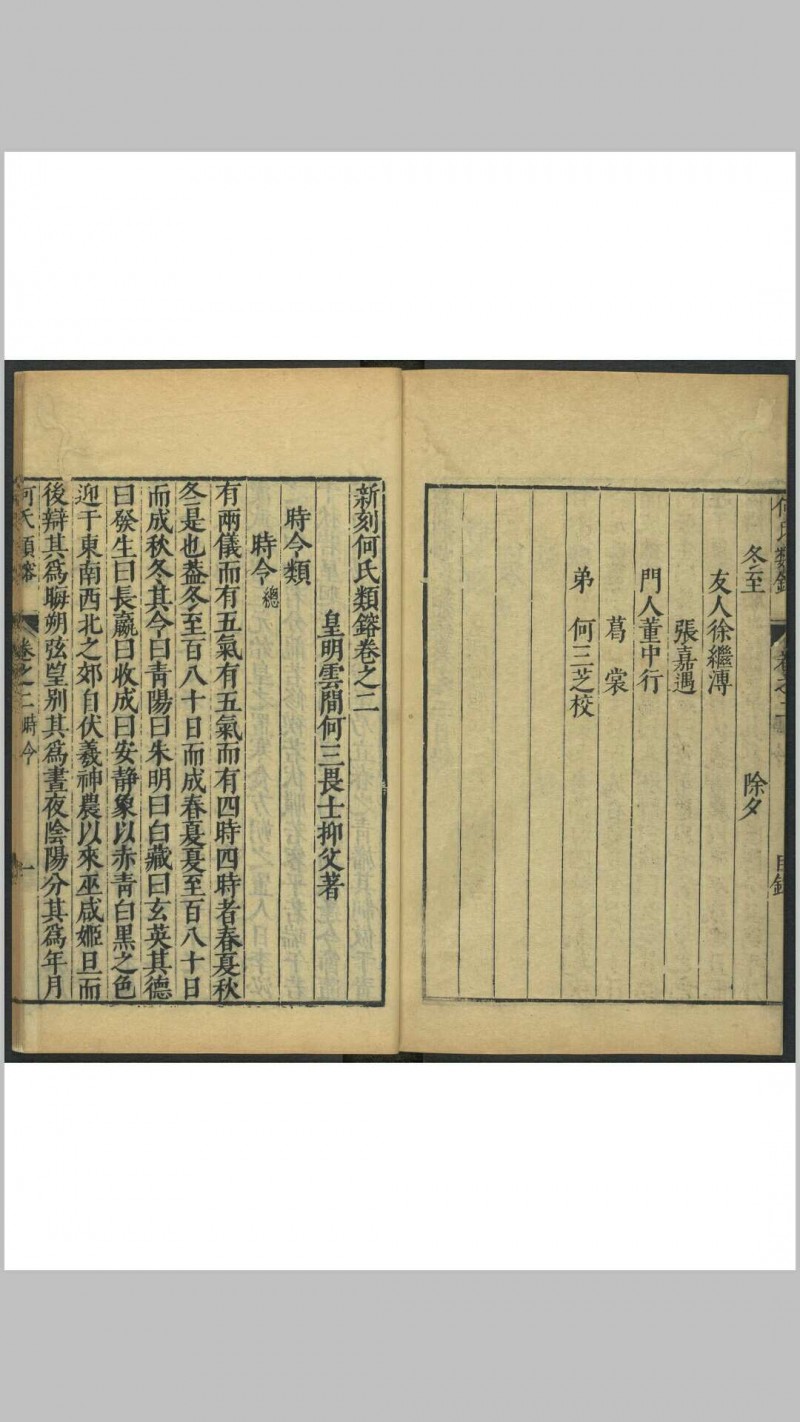 何氏類鎔 卷之二 目錄
冬至 除夕
友人徐繼溥
張嘉遇
門人董中行
葛裳
弟 何三芝校
新刻何氏類鎔卷之二
皇明雲間何三畏士抑父著
時令類
時令總
有兩儀而有五氣有五氣而有四時四時者春夏秋
冬是也葢冬至百八十日而成春夏夏至百八十日
而成秋冬其令曰青陽曰朱明曰白藏曰玄英其德
曰發生曰長嬴曰收成曰安静象以赤青白黒之色
迎于東南西北之郊自伏羲神農以來巫咸姬旦而
後辯其為晦朔弦望别其為晝夜陰陽分其為年月
何氏類鎔 卷之二時令 一